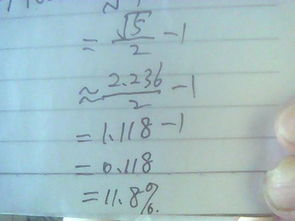 = √5/2 - 1
≈ 2.236/2 - 1
= 1.118 - 1
= 0.118
= 11.8%.